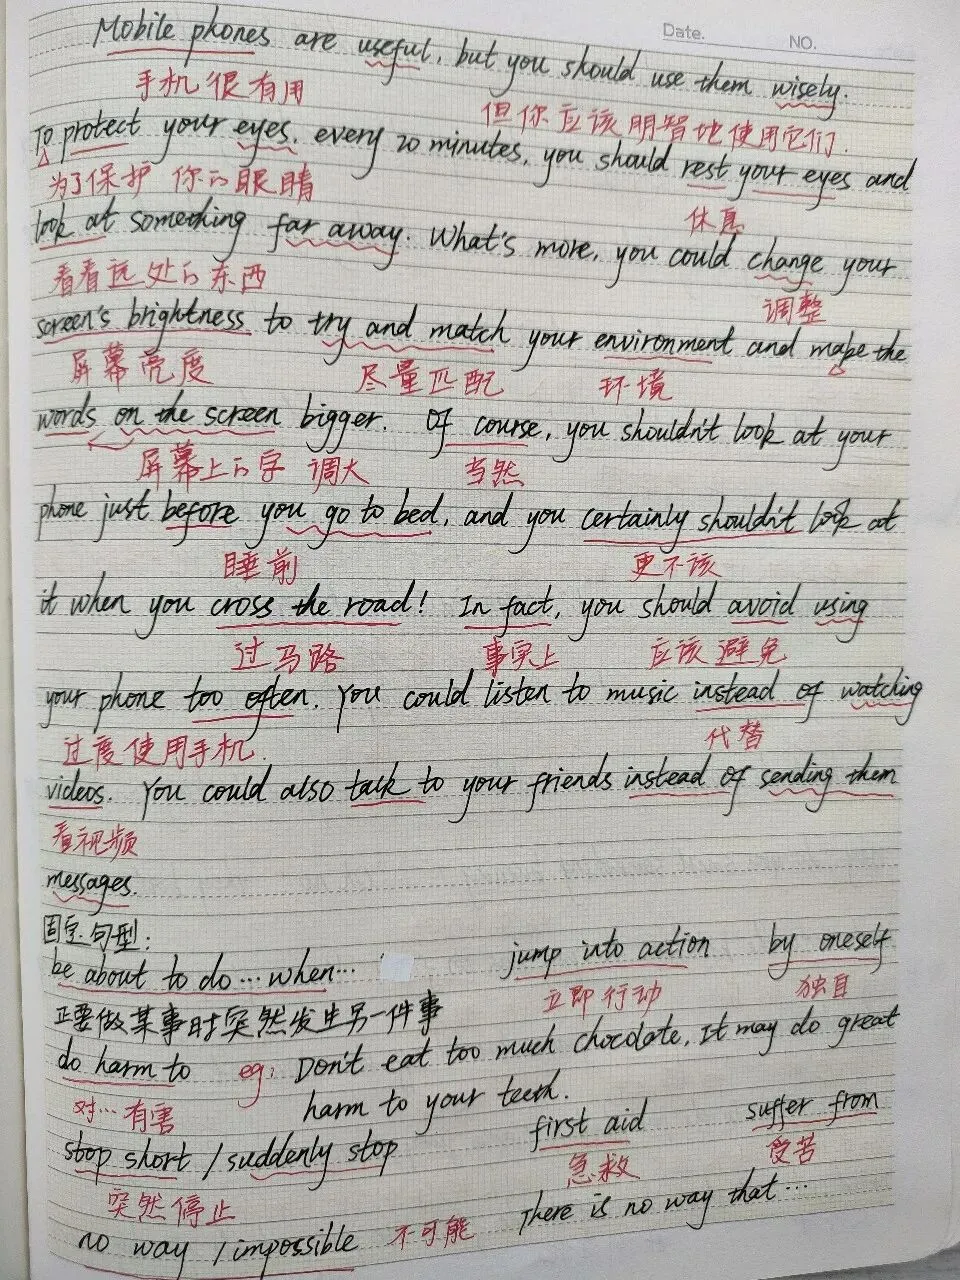 Date.
NO.
Mobile phones are useful, but you should use them wisely.
手机很有用 但你应该明智地使用它们.
To protect your eyes, every 20 minutes, you should rest your eyes and
为了保护 你的眼睛 休息
look at something far away. What's more, you could change your
看看远处的东西 调整
screen's brightness to try and match your environment and make the
屏幕亮度 尽量匹配 环境
words on the screen bigger. Of course, you shouldn't look at your
屏幕上的字 调大 当然
phone just before you go to bed, and you certainly shouldn't look at
睡前 更不该
it when you cross the road! In fact, you should avoid using
过马路 事实上 应该避免
your phone too often. You could listen to music instead of watching
过度使用手机. 代替
videos. You could also talk to your friends instead of sending them
看视频
messages.
固定句型:
be about to do…when… jump into action by oneself
立即行动 独自
正要做某事时突然发生另一件事
do harm to eg: Don't eat too much chocolate, It may do great
对…有害 harm to your teeth.
stop short / suddenly stop first aid suffer from
突然停止 急救 受苦
no way / impossible 不可能 There is no way that…